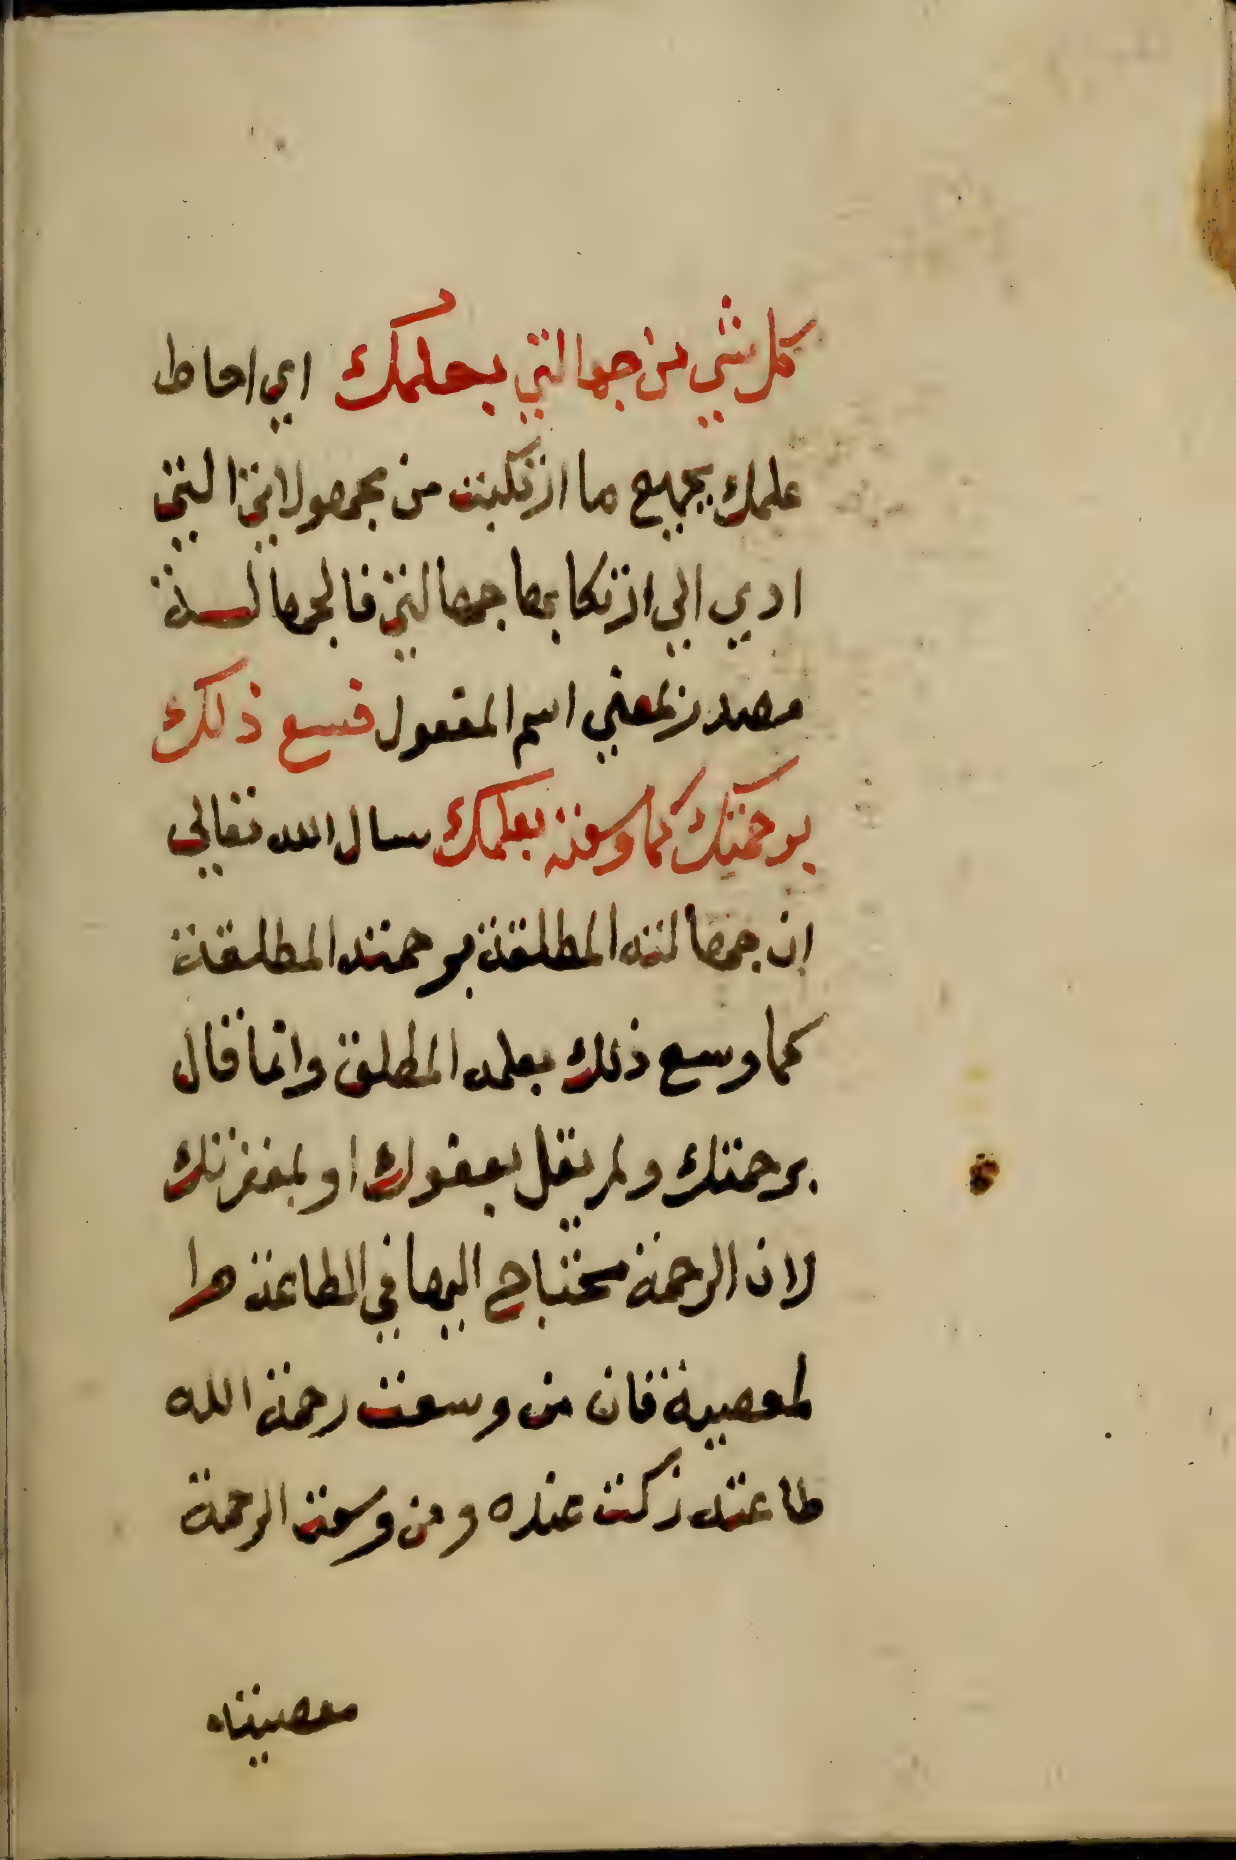 كل شي من جهالتي بحلمك اي احاط
علمك بجميع ما ارتكبت من مجهولاتي التي
ادي الي ارتكابها جهالتي فالجهالة
مصدر بمعني اسم المفعول فسع ذلك
برحمتك كما وسعته بعلمك سال الله تعالي
ان جهالته المطلقة برحمته المطلقة
كما وسع ذلك بعلمه المطلق وانما قال
برحمتك ولم يقل بعفوك او بمغفرتك
لان الرحمة محتاج اليها في الطاعة وا
لمعصية فان من وسعت رحمة الله
طاعته زكت عنده ومن وسعت الرحمة
معصيته